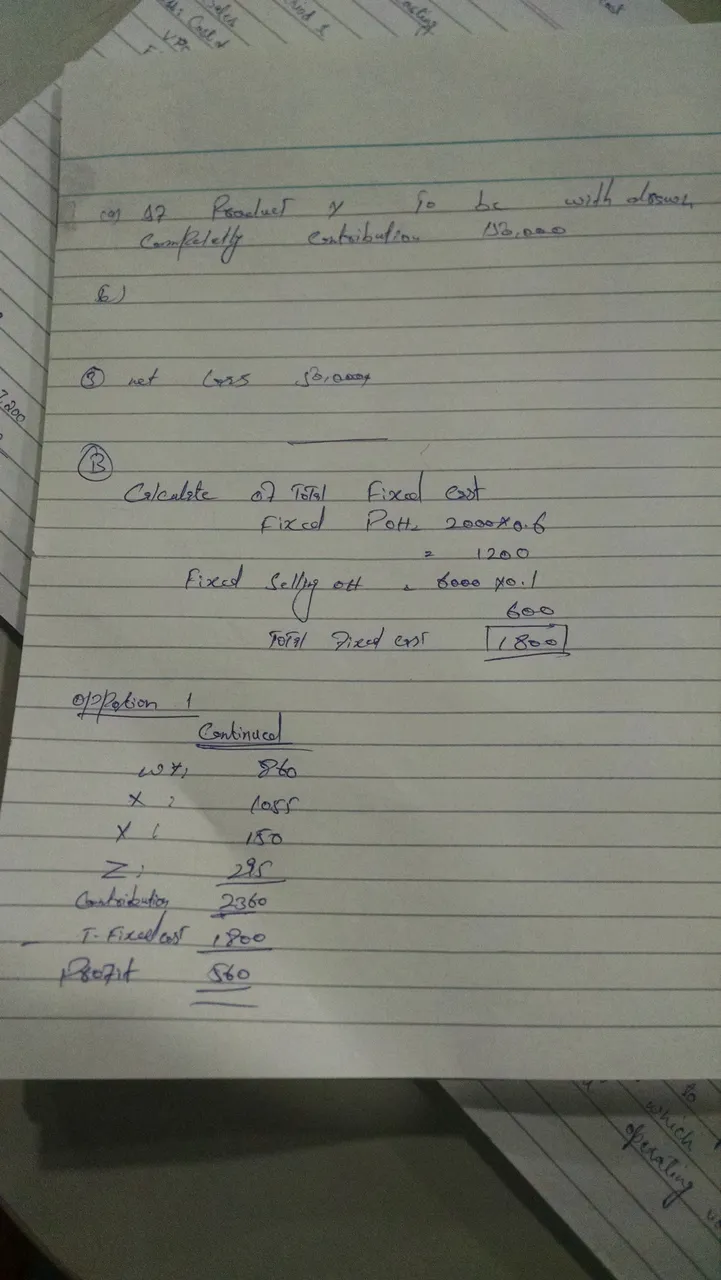 Cost
(a) If Product y To be with drawn
Completly contribution 150,000
b)
③ net Loss 50,000
7,200
Ⓑ
Calculate of Total Fixed cost
Fixed POH = 2000×0.6
= 1200
Fixed Selling OH = 6000×0.1
600
Total Fixed cost 1800
Opption 1
Continued
W 860
X : 1055
Y : 150
Z : 295
Contribution 2360
– T-Fixed cost 1800
Profit 560
which
operating